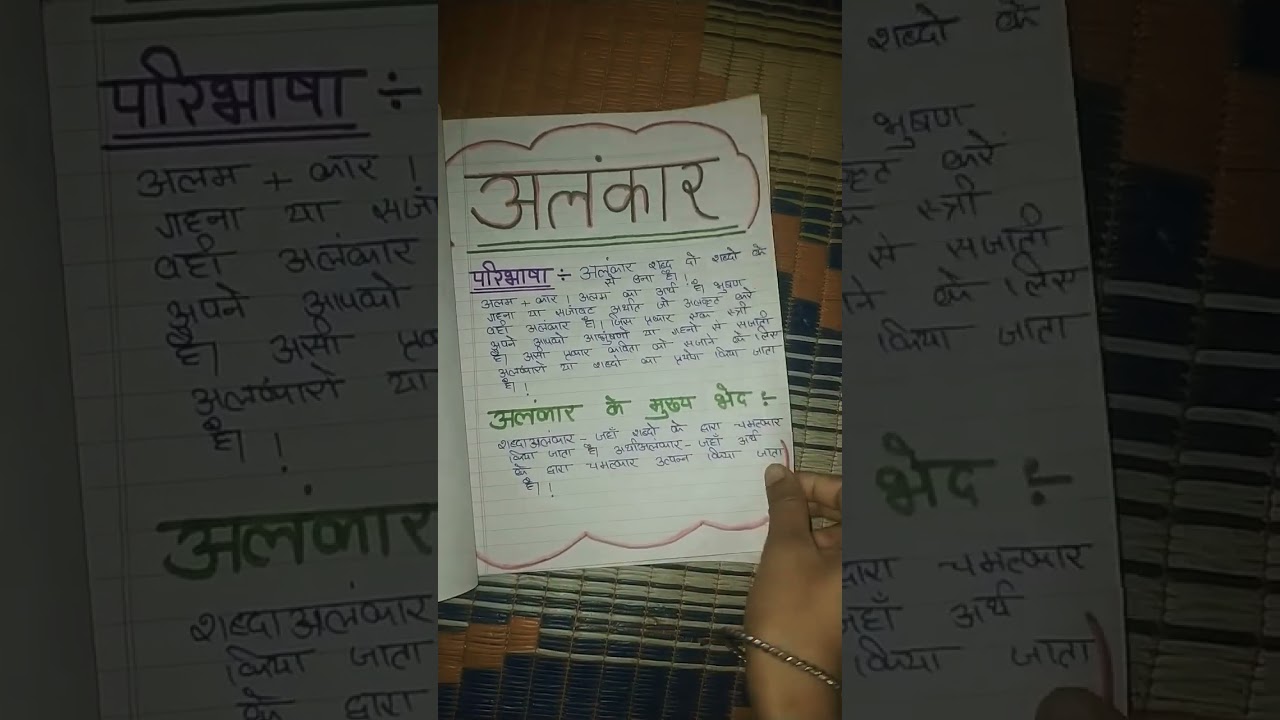 अलंकार
परिभाषा ÷ अलंकार शब्द दो शब्दो के
से बना है। !
अलम + कार । अलम का अर्थ है। भुषण
गहना या सजावट अर्थात जो अलकृत करे
वही अलंकार है। जिस प्रकार एक स्त्री
अपने आपको आभुषणो या गहनो से सजाती
है। उसी प्रकार कविता को सजाने के लिए
अलंकारो या शब्दो का प्रयोग किया जाता
है। !
अलंकार के मुख्य भेद ÷
शब्दाअलंकार - जहाँ शब्दो के द्वारा चमत्कार
किया जाता है। अर्थाअलंकार - जहाँ अर्थ
के द्वारा चमत्कार उत्पन्न किया जाता
है। !